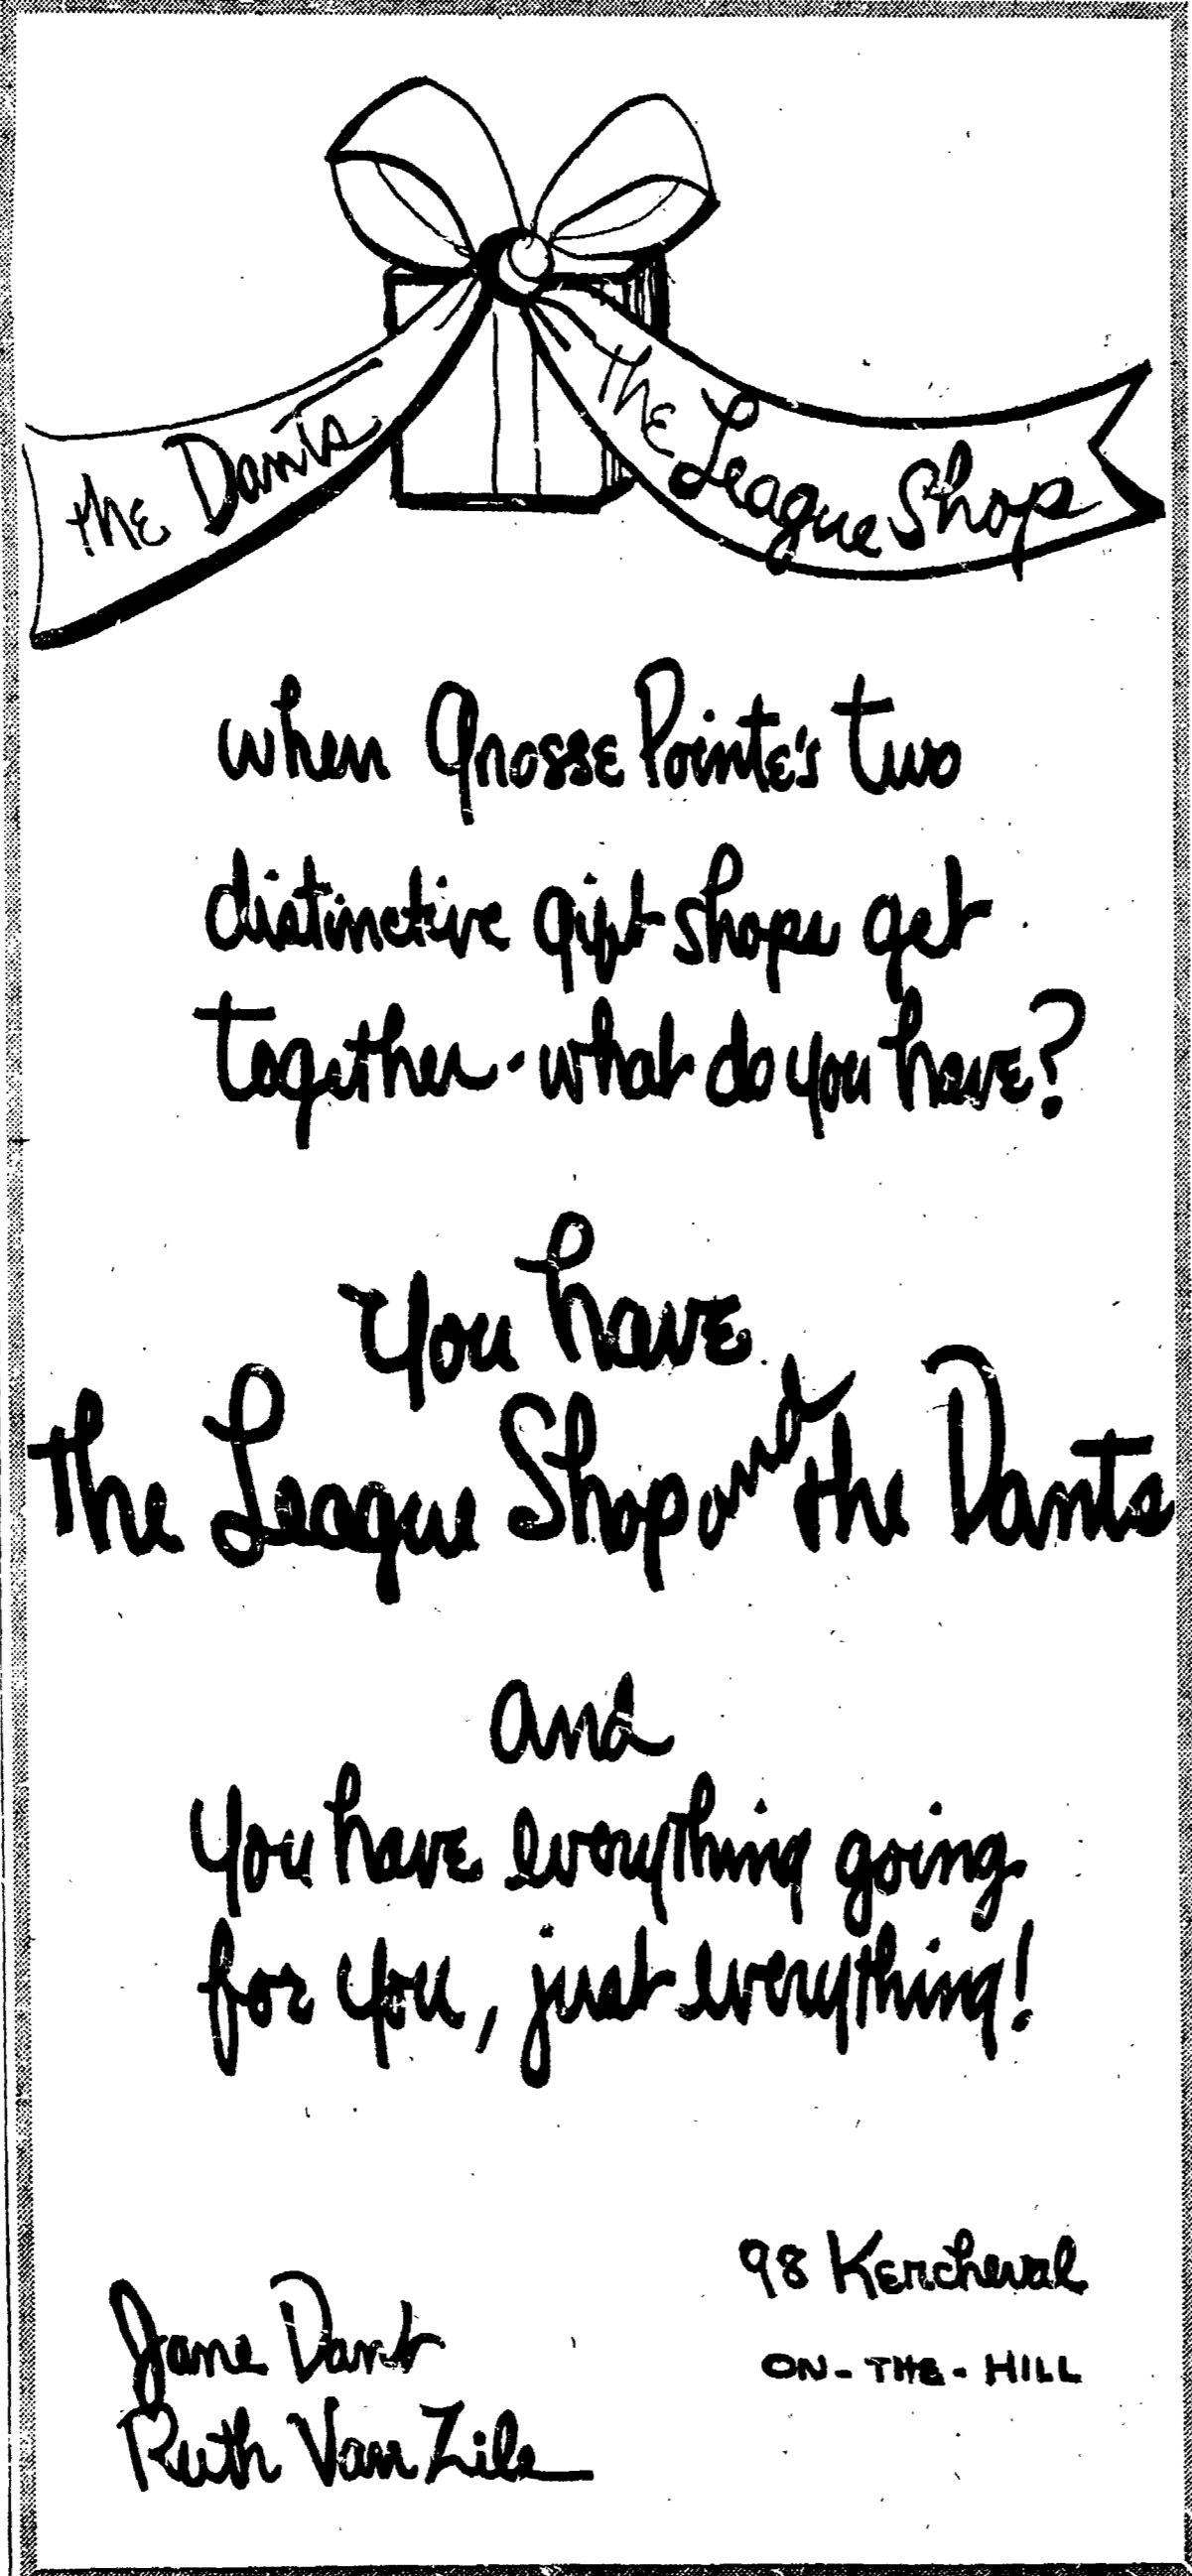 the Dants
the League Shop
when Grosse Pointe's two
distinctive gift shops get
together - what do you have?
You have
the League Shop and the Dants
and
You have everything going
for you, just everything!
98 Kercheval
ON-THE-HILL
Jane Dant
Ruth Van Zile